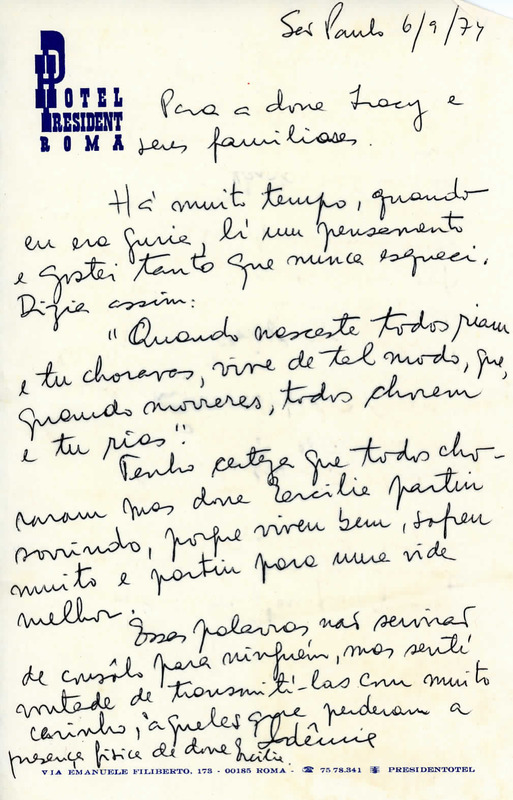 São Paulo 6/9/74
HOTEL
PRESIDENT
ROMA
Para a dona Iracy e
seus familiares.
Há muito tempo, quando
eu era guria, li um pensamento
e gostei tanto que nunca esqueci.
Dizia assim:
"Quando nasceste todos riam
e tu choravas, vive de tal modo, que,
quando morreres, todos chorem
e tu rias".
Tenho certeza que todos cho-
raram mas dona Ercilia partiu
sorrindo, porque viveu bem, sofreu
muito e partiu para uma vida
melhor.
Essas palavras não servirão
de consôlo para ninguém, mas sentí
vontade de transmití-las com muito
carinho, àqueles que perderam a
presença física de dona Ercilia.
Idêmia
VIA EMANUELE FILIBERTO, 173 - 00185 ROMA - ☎ 75.78.341 PRESIDENTOTEL